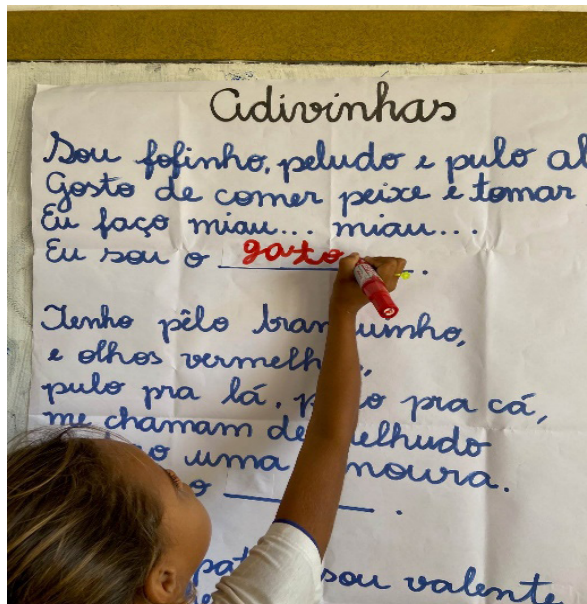 Adivinhas
Sou fofinho, peludo e pulo al
Gosto de comer peixe e tomar
Eu faço miau... miau...
Eu sou o gato.
Tenho pêlo bran uinho,
e olhos vermelh ,
pulo pra lá, p o pra cá,
me chamam de elhudo
o uma noura.
o ______ .
pat sou valente